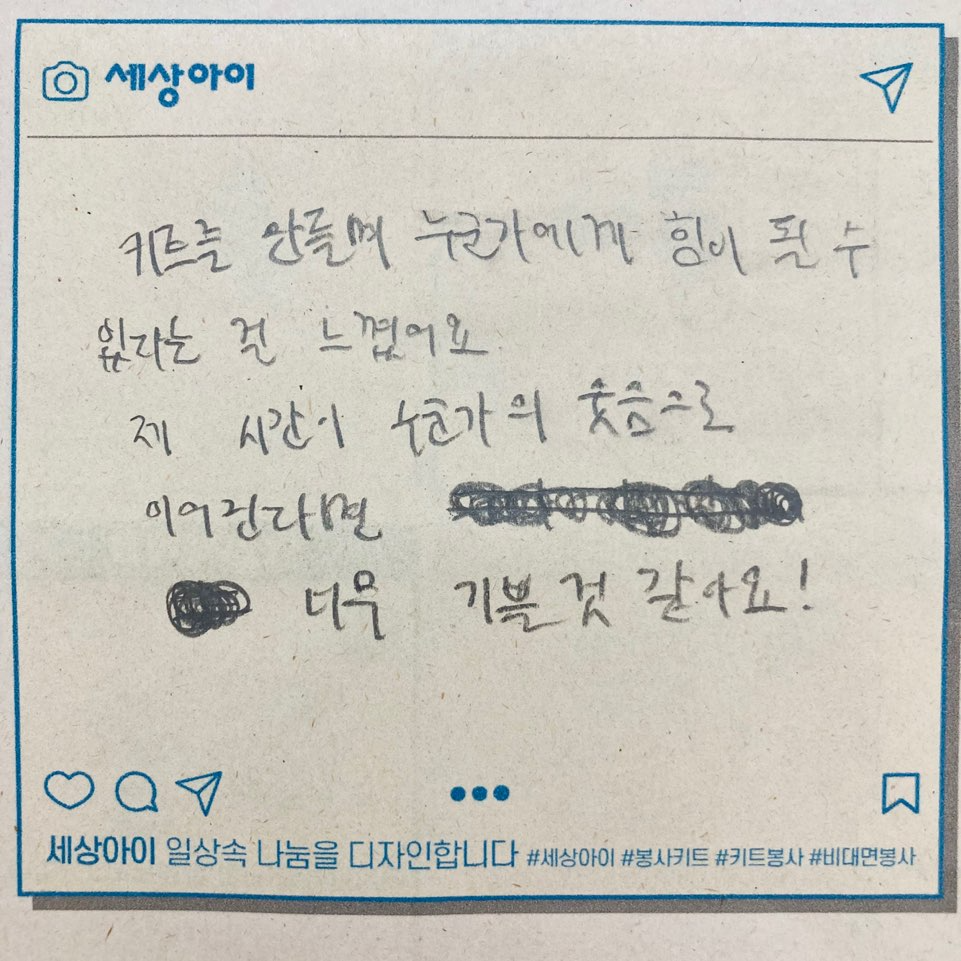 세상아이
키트를 만들며 누군가에게 힘이 될 수
있다는 걸 느꼈어요
제 시간이 누군가의 웃음으로
이어진다면
너무 기쁠 것 같아요!
세상아이 일상속 나눔을 디자인합니다 #세상아이 #봉사키트 #키트봉사 #비대면봉사